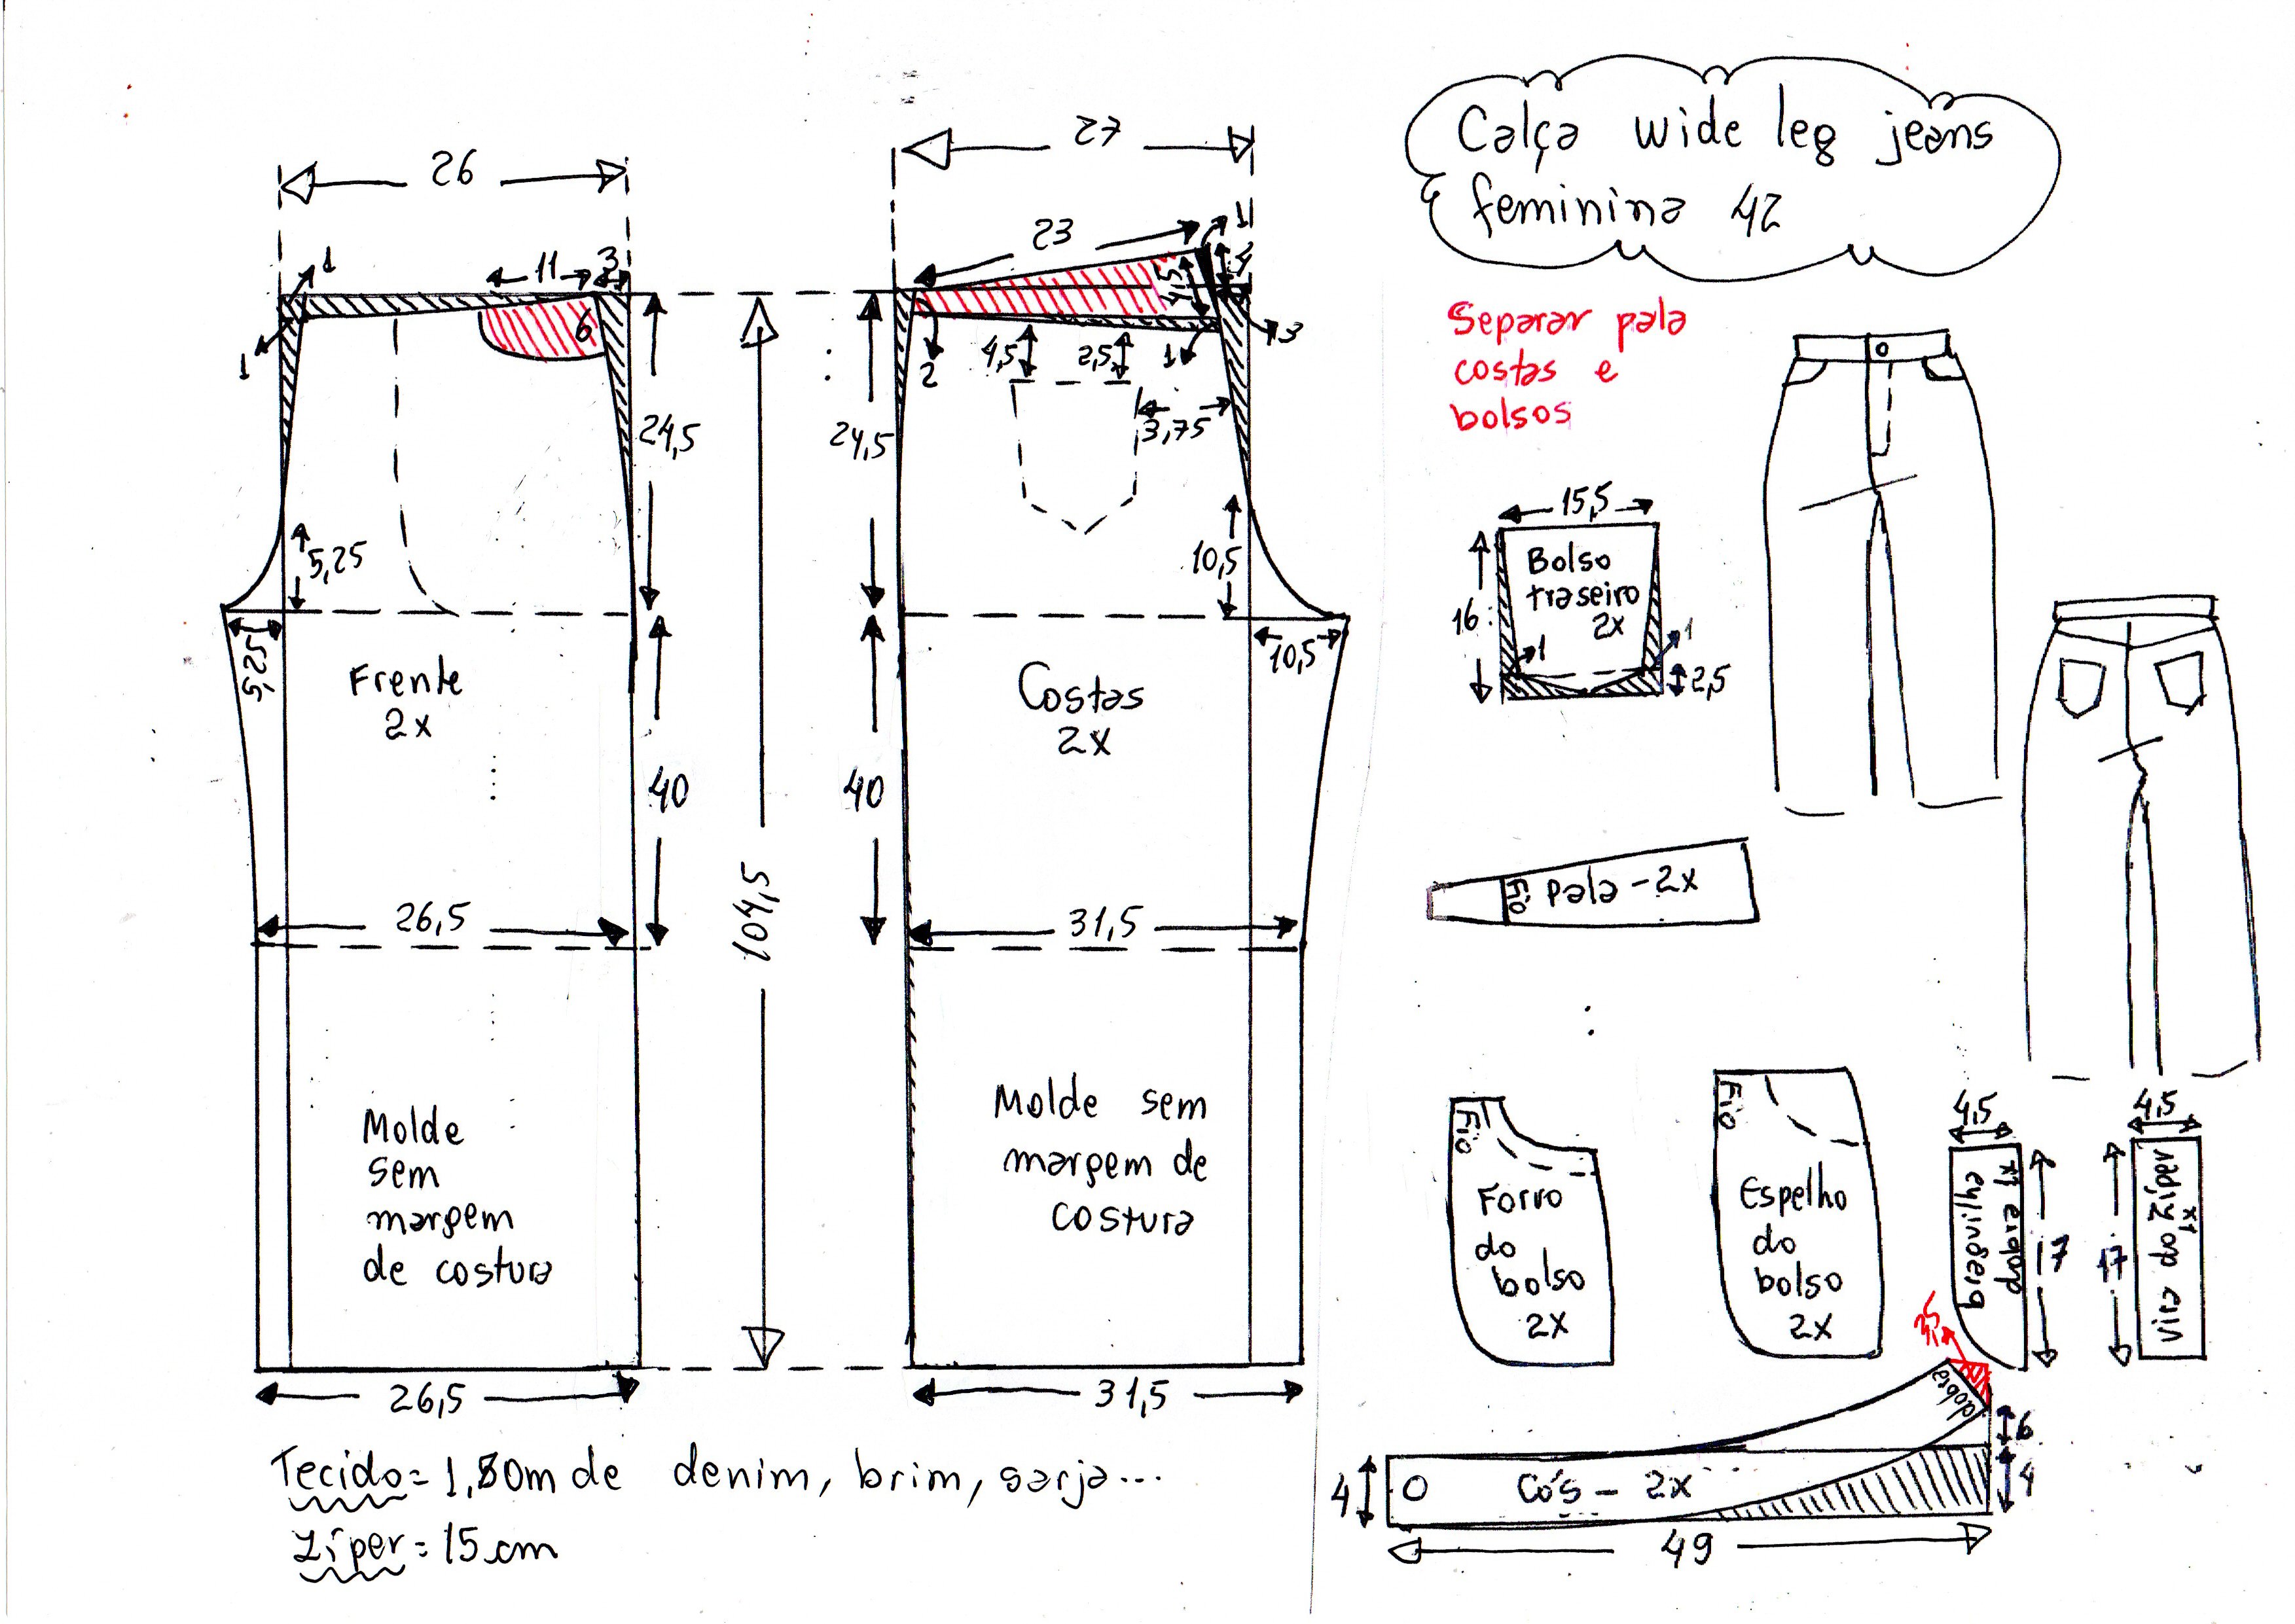 26
11
3
1
1
6
24,5
5,25
5,25
Frente
2x
40
26,5
Molde
sem
margem
de costura
26,5
104,5
27
23
1
4
4,5
3
2
4,5
2,5
1
3,75
24,5
10,5
10,5
Costas
2x
40
31,5
Molde sem
margem de
costura
31,5
Tecido = 1,80m de denim, brim, sarja...
Zíper = 15 cm
Calça wide leg jeans
feminina 42
Separar pala
costas e
bolsos
15,5
16
Bolso
traseiro
2x
1
1
2,5
Fio
pala - 2x
Fio
Forro
do
bolso
2x
Fio
Espelho
do
bolso
2x
4,5
braguilha
dobra x1
17
4,5
17
Vira do zíper
x1
dobra
6
4
4
Cós - 2x
49